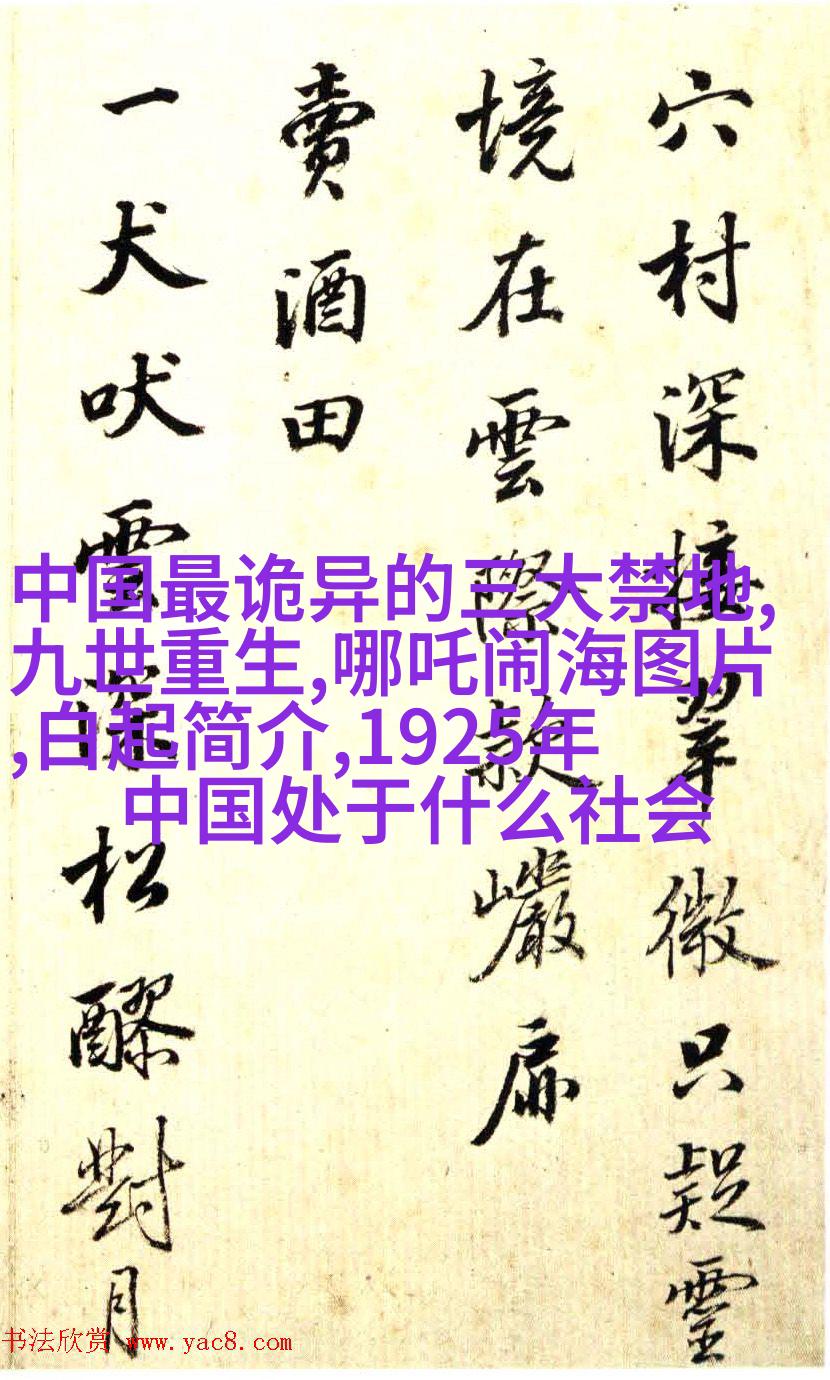 穴村深接翠微只疑靈
境在雲際款巖扉
賣酒田
一犬吠雲深松醪對月
中国最诡异的三大禁地,
九世重生,哪吒闹海图片
,白起简介,1925年
中国处于什么社会
书法欣赏 www.yac8.com